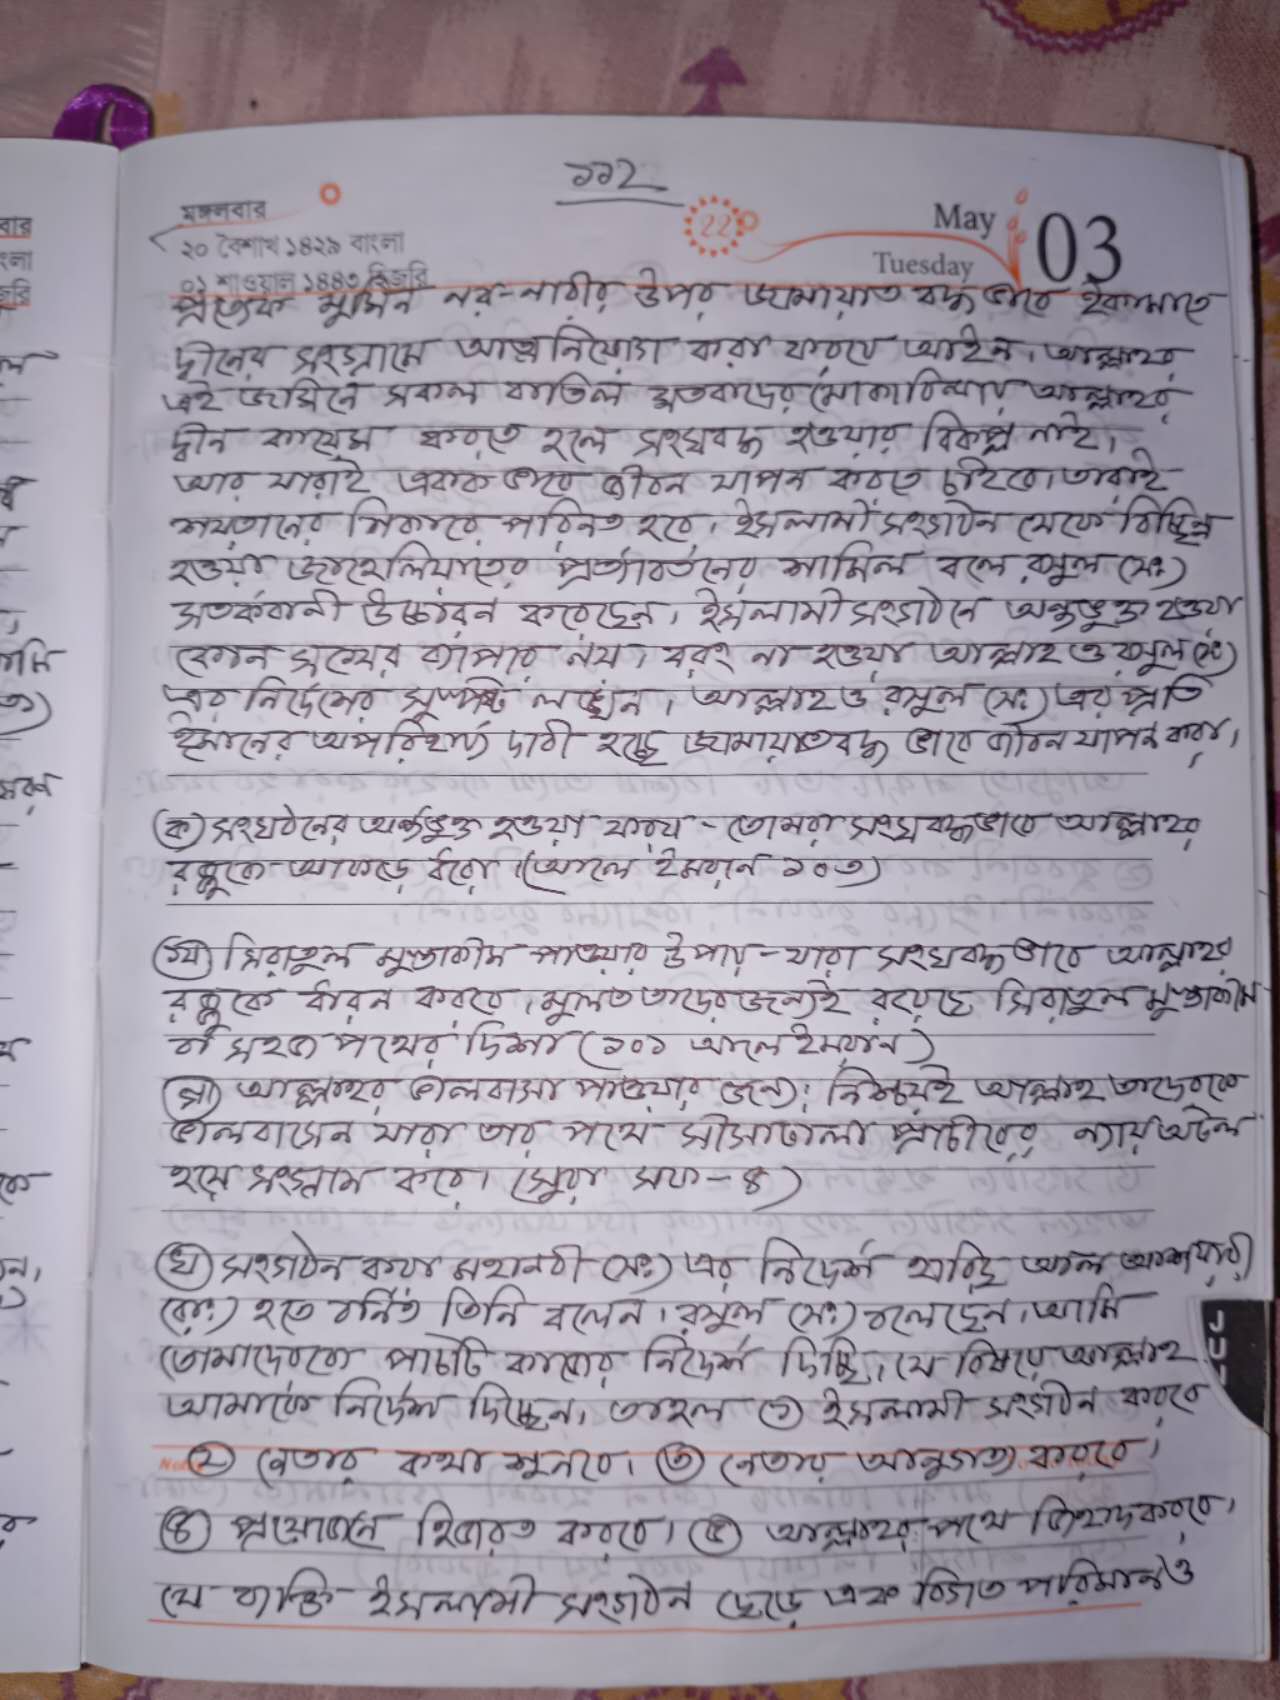 ১১২
মঙ্গলবার
২০ বৈশাখ ১৪২৯ বাংলা
০১ শাওয়াল ১৪৪৩ হিজরি
22
May 03
Tuesday
প্রত্যেক মুমিন নর-নারীর উপর জামায়াত বদ্ধ ভাবে ইকামাতে
দ্বীনের সংগ্রামে আত্ম নিয়োগ করা ফরযে আইন। আল্লাহর
এই জমিনে সকল বাতিল মতবাদের মোকাবিলায় আল্লাহর
দ্বীন কায়েম করতে হলে সংঘবদ্ধ হওয়ার বিকল্প নাই।
আর যারাই একক ভাবে জীবন যাপন করতে চাইবে। তারাই
শয়তানের শিকারে পরিনত হবে। ইসলামী সংগঠন থেকে বিচ্ছিন্ন
হওয়া জাহেলিয়াতের প্রত্যাবর্তনের শামিল বলে রসুল (সঃ)
সতর্কবানী উচ্চারন করেছেন। ইসলামী সংগঠনে অন্তভুক্ত হওয়া
কোন সখের ব্যাপার নয়। বরং না হওয়া আল্লাহ ও রসুল (সঃ)
এর নির্দেশের সুস্পষ্ট লঙ্ঘন। আল্লাহ ও রসুল (সঃ) এর প্রতি
ইমানের অপরিহার্য দাবী হচ্ছে জামায়াতবদ্ধ ভাবে জীবন যাপন করা।
(ক) সংঘঠনের অর্ন্তভুক্ত হওয়া ফরয - তোমরা সংঘবদ্ধভাবে আল্লাহর
রজ্জুকে আকড়ে ধরো। (আলে ইমরান ১০৩)
(খ) সিরাতুল মুস্তাকীম পাওয়ার উপায় - যারা সংঘবদ্ধ ভাবে আল্লাহর
রজ্জুকে ধারন করবে। মুলত তাদের জন্যেই রয়েছে সিরাতুল মুস্তাকীম
বা সহজ পথের দিশা (১০১ আলে ইমরান)
(গ) আল্লাহর ভালবাসা পাওয়ার জন্য: নিশ্চয়ই আল্লাহ তাদেরকে
ভালবাসেন যারা তার পথে সীসাঢালা প্রাচীরের ন্যায় অটল
হয়ে সংগ্রাম করে। (সুরা সফ - ৪)
(ঘ) সংগঠন করা মহানবী (সঃ) এর নির্দেশ হারিছ আল আশয়ারী
(রাঃ) হতে বর্নিত তিনি বলেন। রসুল (সঃ) বলেছেন। আমি
তোমাদেরকে পাচটি কাজের নির্দেশ দিচ্ছি। যে বিষয়ে আল্লাহ
আমাকে নির্দেশ দিচ্ছেন। তাহল (১) ইসলামী সংগঠন করবে
(২) নেতার কথা শুনবে। (৩) নেতার আনুগত্য করবে।
(৪) প্রয়োজনে হিজরত করবে। (৫) আল্লাহর পথে জিহাদ করবে।
যে ব্যক্তি ইসলামী সংগঠন ছেড়ে এক বিগত পরিমানও
JUN